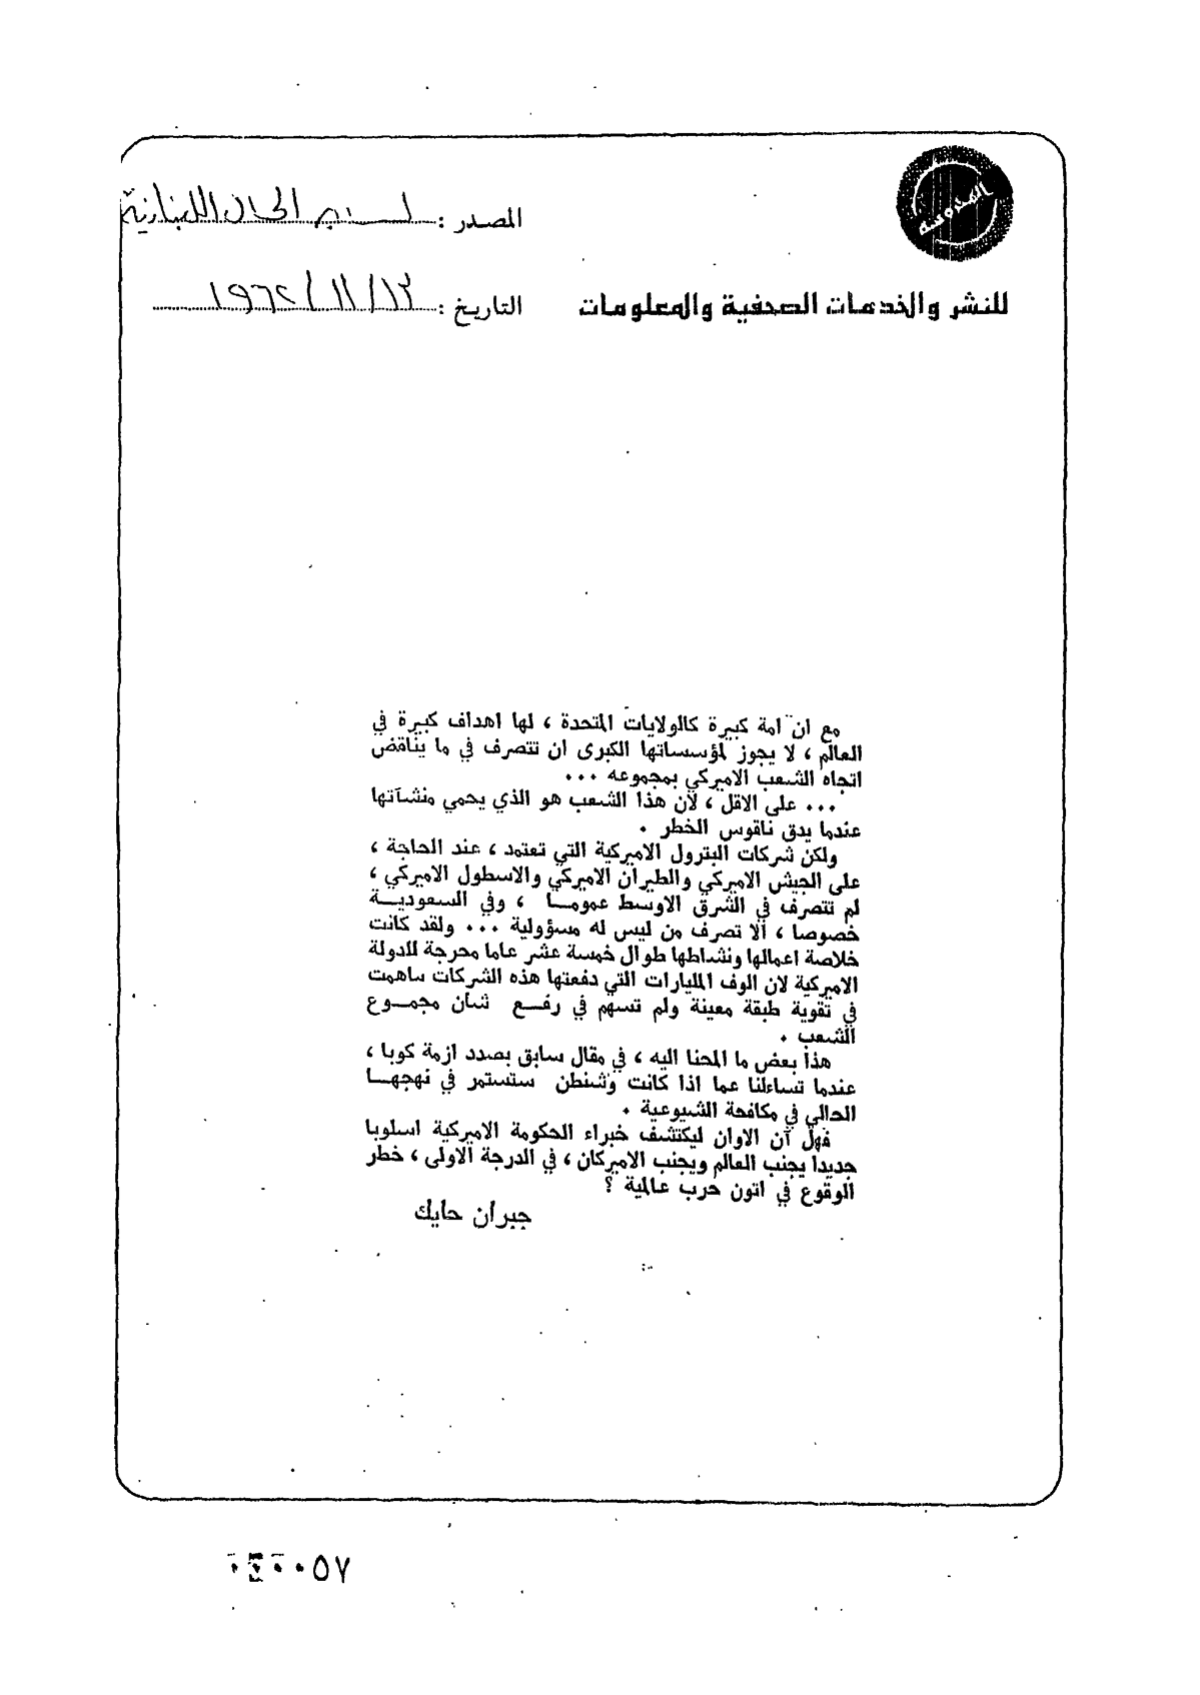 المصدر : لسان الحال اللبنانية
المدوسة
التاريخ : ١٢/١١/١٩٦٢
للنشر والخدمات الصحفية والمعلومات
مع ان امة كبيرة كالولايات المتحدة ، لها اهداف كبيرة في
العالم ، لا يجوز لمؤسساتها الكبرى ان تتصرف في ما يناقض
اتجاه الشعب الاميركي بمجموعه ٠٠٠
٠٠٠ على الاقل ، لان هذا الشعب هو الذي يحمي منشآتها
عندما يدق ناقوس الخطر ٠
ولكن شركات البترول الاميركية التي تعتمد ، عند الحاجة ،
على الجيش الاميركي والطيران الاميركي والاسطول الاميركي ،
لم تتصرف في الشرق الاوسط عموما ، وفي السعودية
خصوصا ، الا تصرف من ليس له مسؤولية ٠٠٠ ولقد كانت
خلاصة اعمالها ونشاطها طوال خمسة عشر عاما محرجة للدولة
الاميركية لان الوف المليارات التي دفعتها هذه الشركات ساهمت
في تقوية طبقة معينة ولم تسهم في رفع شان مجموع
الشعب ٠
هذا بعض ما المحنا اليه ، في مقال سابق بصدد ازمة كوبا ،
عندما تساءلنا عما اذا كانت وشنطن ستستمر في نهجها
الحالي في مكافحة الشيوعية ٠
فهل آن الاوان ليكتشف خبراء الحكومة الاميركية اسلوبا
جديدا يجنب العالم ويجنب الاميركان ، في الدرجة الاولى ، خطر
الوقوع في اتون حرب عالمية ؟
جبران حايك